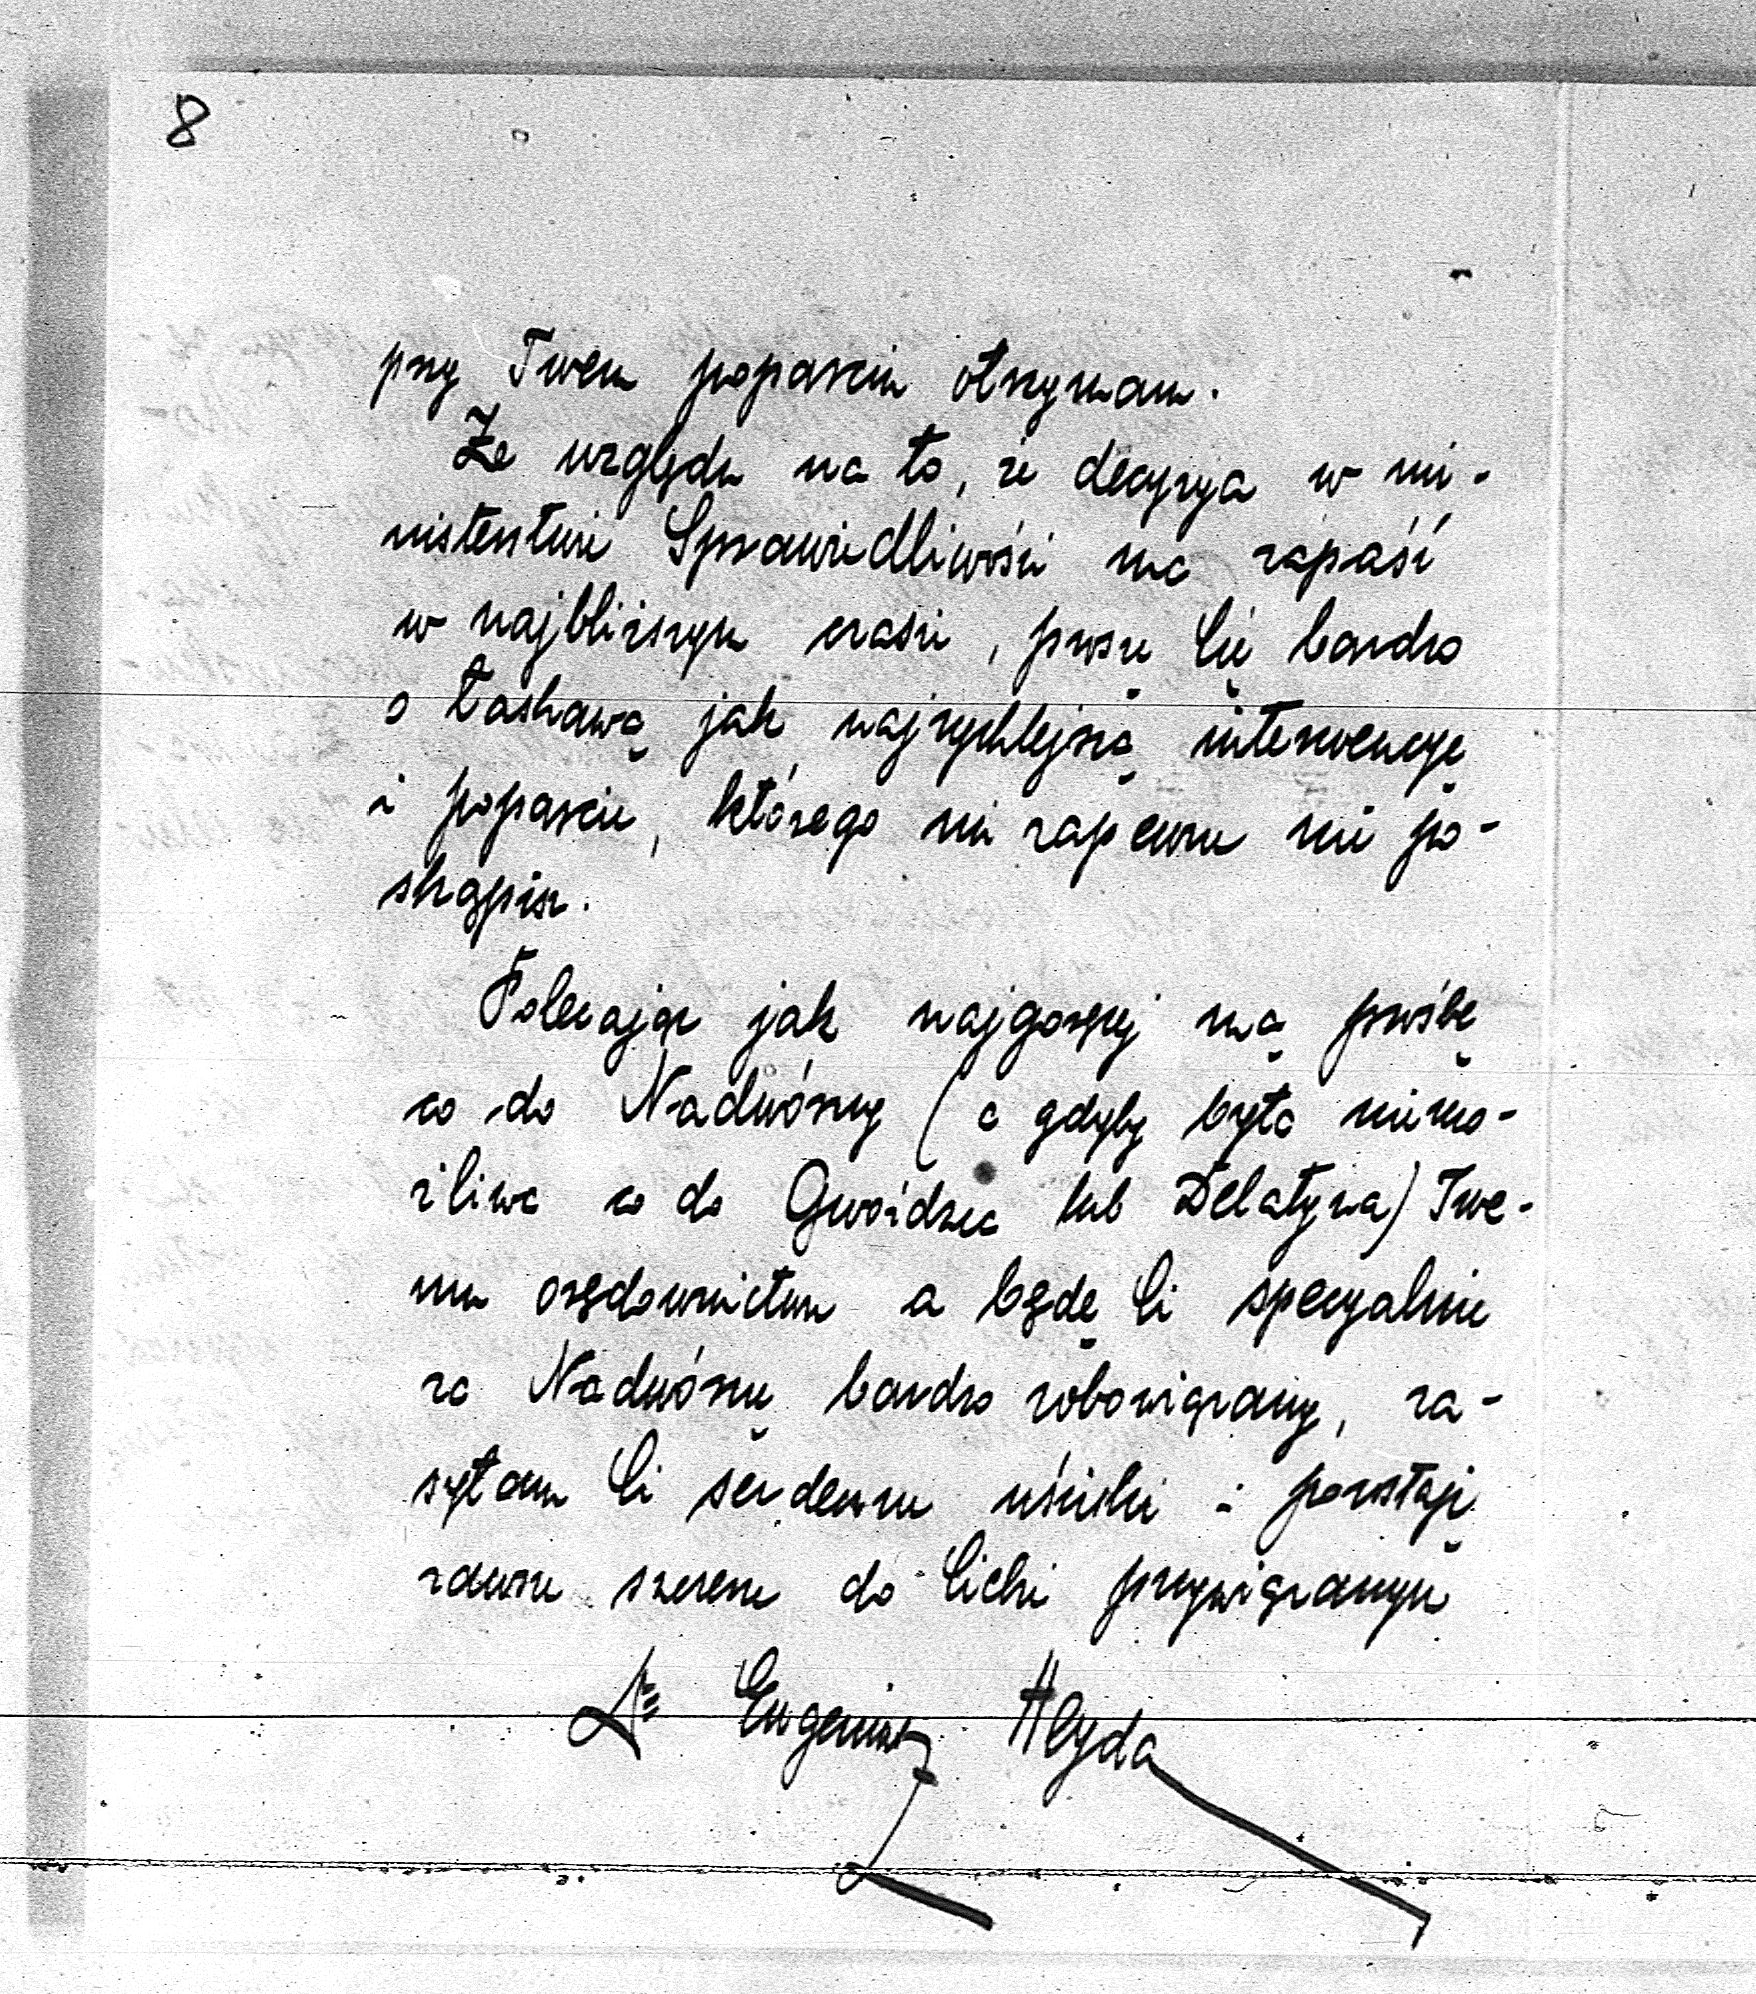 8
przy Twem poparciu otrzymam.
Ze względu na to, że decyzya w mi-
nisterstwie Sprawiedliwości ma zapaść
w najbliższym czasie, proszę Cię bardzo
o łaskawą jak najrychlejszą interwencyę
i poparcie, którego mi zapewne nie po-
skąpisz.
Polecając jak najgoręcej mą prośbę
co do Nadwórny (a gdyby była niemo-
żliwa co do Gwoźdźca lub Delatyna) Twe-
mu orędownictwu a będę Ci specyalnie
za Nadwórnę bardzo zobowiązany, za-
syłam Ci serdeczne uściski i pozostaję
zawsze szczerze do Ciebie przywiązanym
Dr Eugeniusz